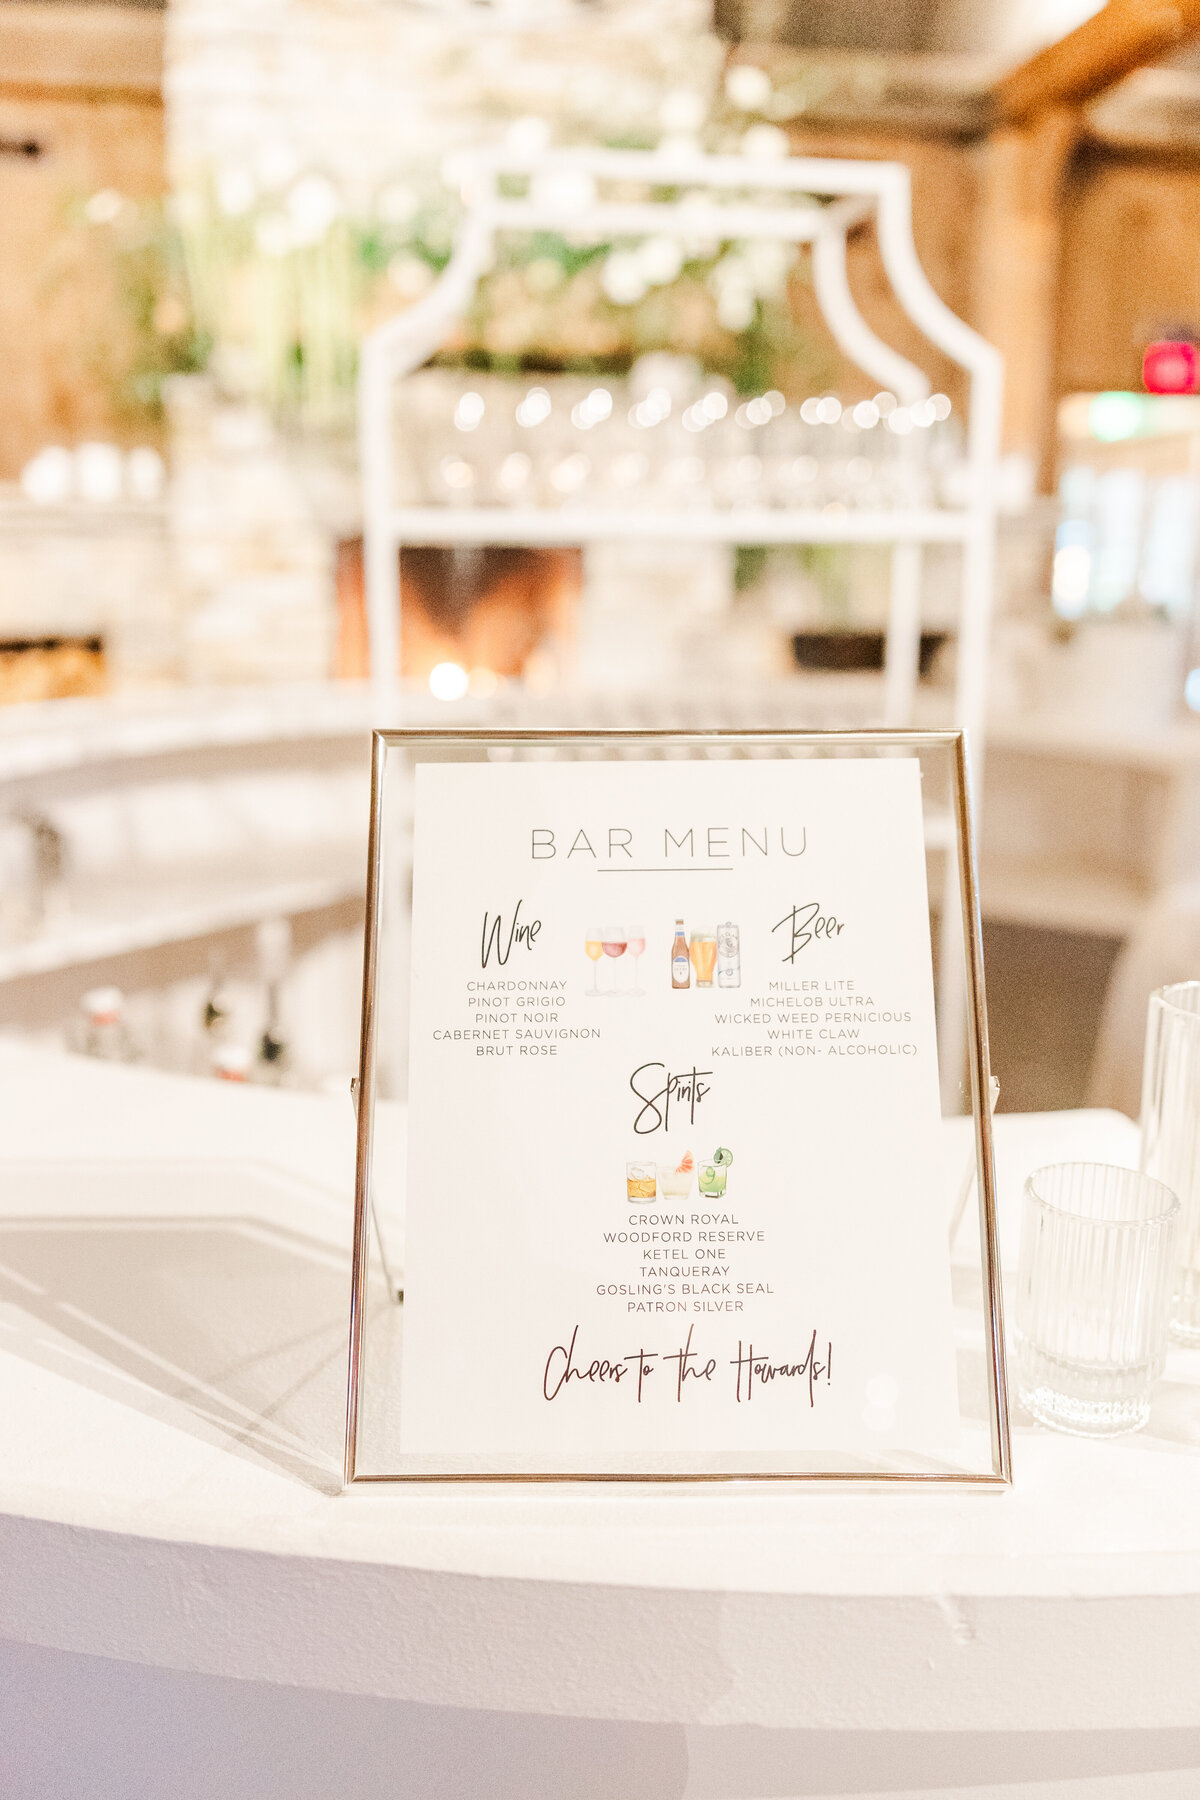 BAR MENU
Wine
CHARDONNAY
PINOT GRIGIO
PINOT NOIR
CABERNET SAUVIGNON
BRUT ROSE
Beer
MILLER LITE
MICHELOB ULTRA
WICKED WEED PERNICIOUS
WHITE CLAW
KALIBER (NON- ALCOHOLIC)
Spirits
CROWN ROYAL
WOODFORD RESERVE
KETEL ONE
TANQUERAY
GOSLING'S BLACK SEAL
PATRON SILVER
Cheers to the Howards!